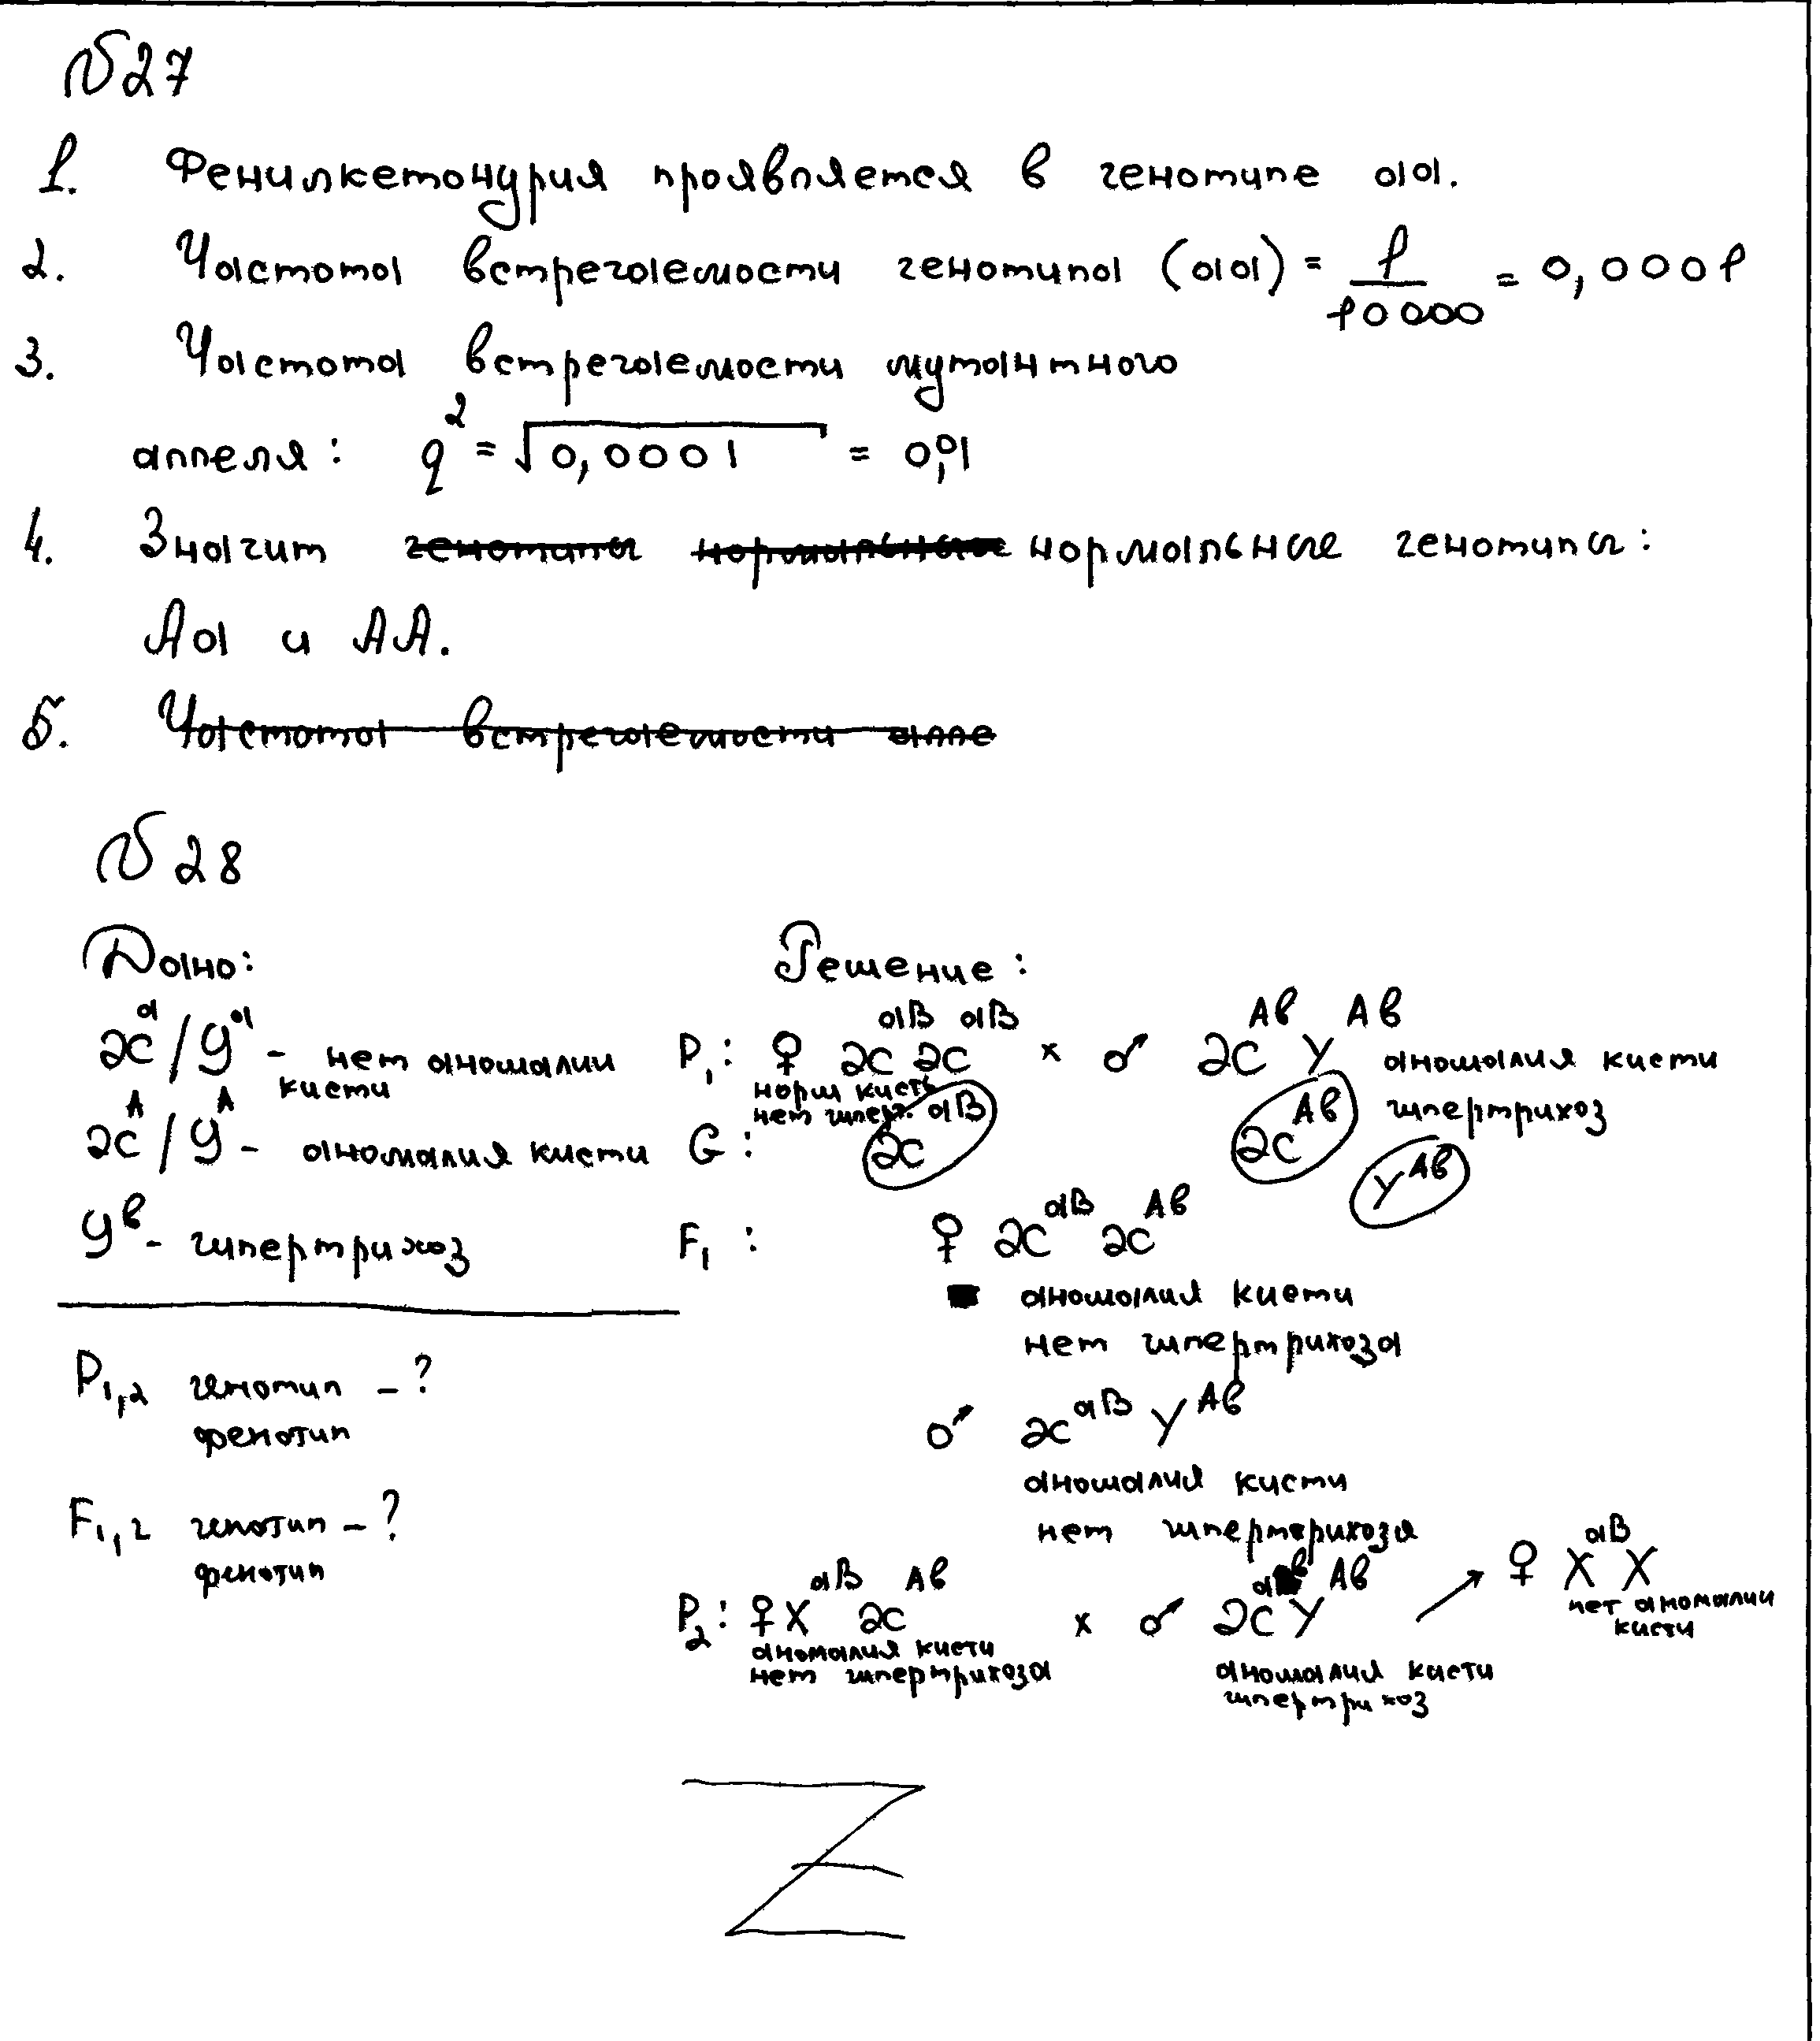 №27
1. Фенилкетонурия проявляется в генотипе аа.
2. Частота встречаемости генотипа (аа) = 1/10000 = 0,0001
3. Частота встречаемости мутантного
аллеля: q² = √0,0001 = 0,01
4. Значит ~~генотипы~~ ~~нормальные~~ нормальные генотипы:
Аа и АА.
5. ~~Частота встречаемости алле~~
№28
Дано:
xᵃ/yᵃ - нет аномалии
кисти
xᴬ/yᴬ - аномалия кисти
yᵇ - гипертрихоз
P₁,₂ генотип - ?
фенотип
F₁,₂ генотип - ?
фенотип
Решение:
P₁: ♀ x^аВ x^аВ × ♂ x^Ав y^Ав аномалия кисти
гипертрихоз
норм кисть
нет гиперт.
G: x^аВ x^Ав y^Ав
F₁: ♀ x^аВ x^Ав
аномалия кисти
нет гипертрихоза
♂ x^аВ y^Ав
аномалия кисти
нет гипертрихоза
P₂: ♀ x^аВ x^Ав × ♂ x^а y^Ав → ♀ X^аВ X
аномалия кисти
нет гипертрихоза
аномалия кисти
гипертрихоз
нет аномалии
кисти